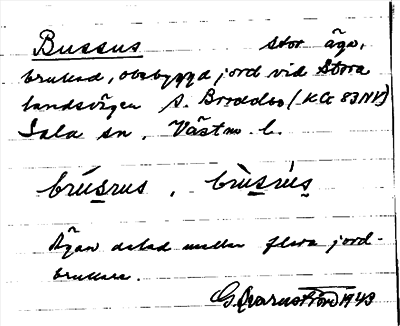 Bussus stor äga,
brukad, obebyggd jord vid Stora
landsvägen S. Broddbo (KG 83NV)
Sala sn, Västm. l.
brúsrus, brùsrús
Ägan delad mellan flera jord-
brukare.
G. Qvarnström 1943